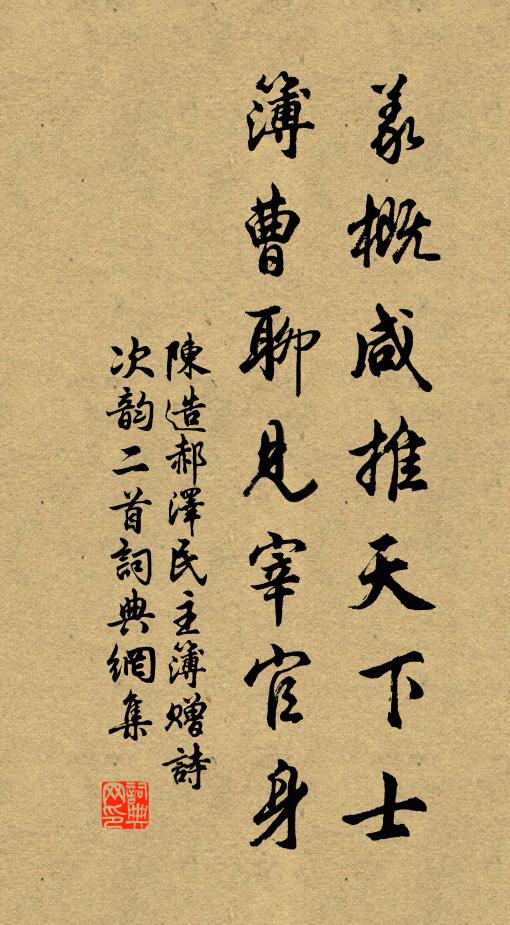 義概咸推天下士
簿曹聊見宰官身
陳造郝澤民主簿贈詩
次韵二首詞典網集
詞典
网印